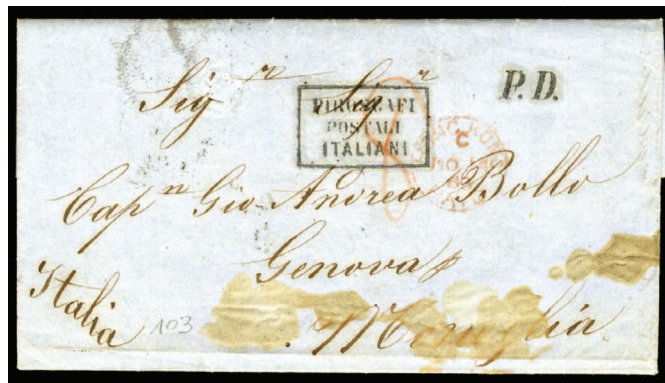 Sig.r Sig.r
P.D.
PIROSCAFI
POSTALI
ITALIANI
HONG KONG
C
Cap.n Gio Andrea Bollo
Genova
Italia
103